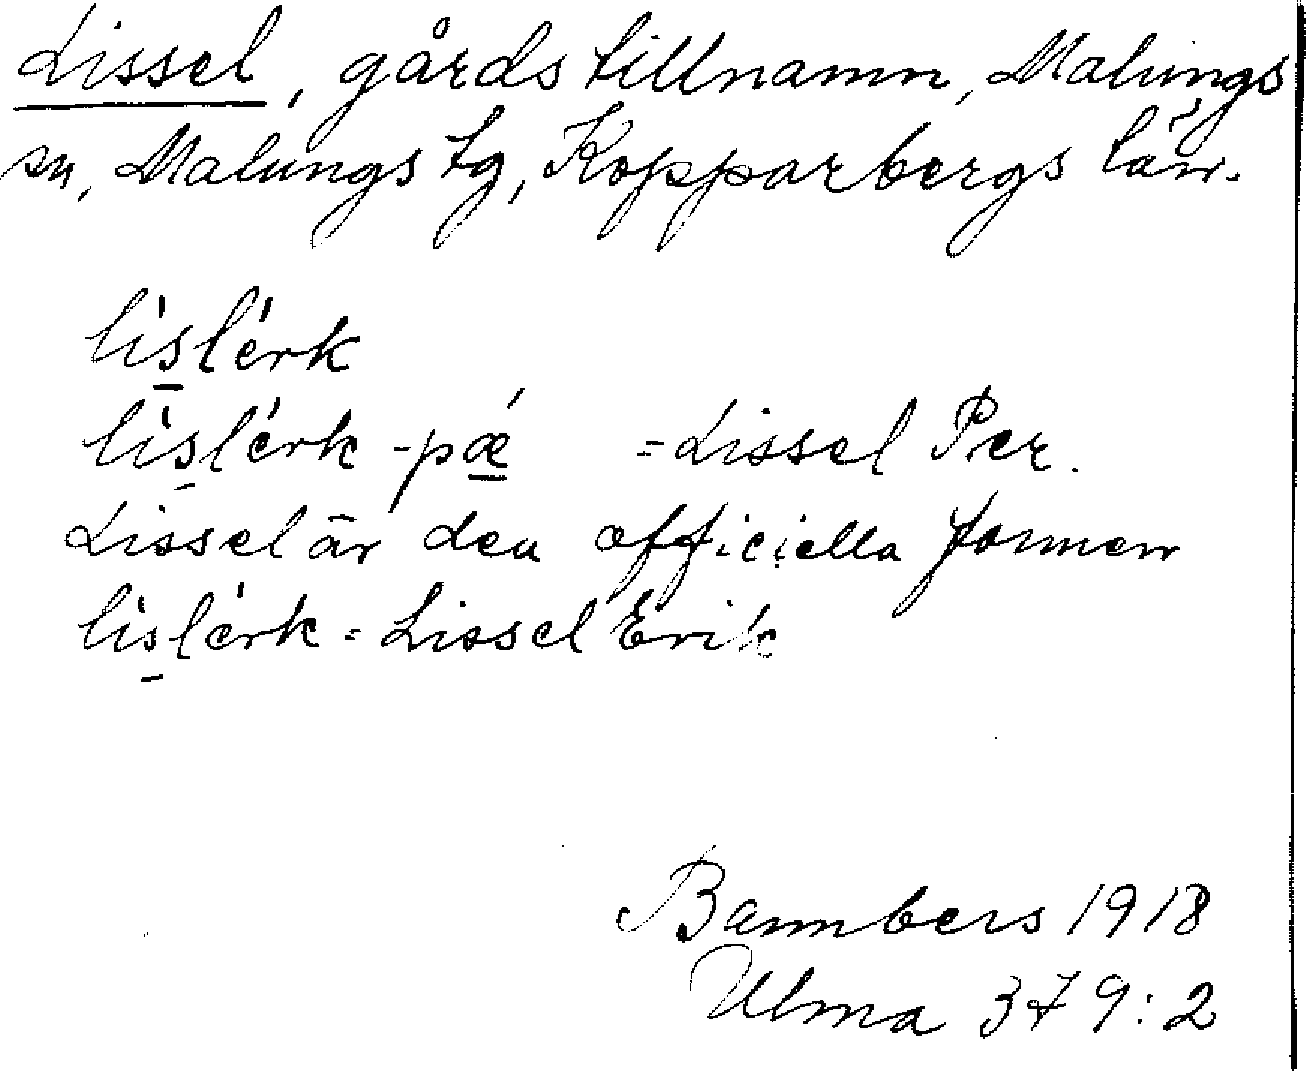 Lissel, gårdstillnamn, Malungs
sn, Malungs tg, Kopparbergs län.
lìslérk
lìslérk -pǽ = Lissel Per.
Lissel är den officiella formen
lìslérk = Lissel Erik
Bannbers 1918
Ulma 379:2